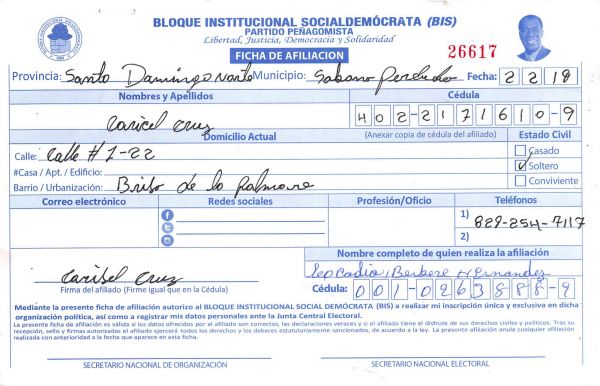 BLOQUE INSTITUCIONAL SOCIALDEMÓCRATA (BIS)
PARTIDO PEÑAGOMISTA
Libertad, Justicia, Democracia y Solidaridad
FICHA DE AFILIACION
26617
Provincia: Santo Domingo Norte Municipio: Sabana Perdida Fecha: 2 2 19
Nombres y Apellidos
Cédula
Caricel Cruz
402-2171610-9
Domicilio Actual
(Anexar copia de cédula del afiliado)
Estado Civil
Calle: Calle #1-22
Casado
#Casa / Apt. / Edificio:
Soltero
Barrio / Urbanización: Brisa de la Palmare
Conviviente
Correo electrónico
Redes sociales
Profesión/Oficio
Teléfonos
1) 829-254-7117
2)
Nombre completo de quien realiza la afiliación
Caribel Cruz
Leocadia, Berbere Hernandez
Firma del afiliado (Firme igual que en la Cédula)
Cédula: 001-0263888-9
Mediante la presente ficha de afiliación autorizo al BLOQUE INSTITUCIONAL SOCIAL DEMÓCRATA (BIS) a realizar mi inscripción única y exclusiva en dicha
organización política, así como a registrar mis datos personales ante la Junta Central Electoral.
La presente ficha de afiliación es válida si los datos ofrecidos por el afiliado son correctos, las declaraciones veraces y si el afiliado tiene el disfrute de sus derechos civiles y políticos. Tras su
recepción, sello y firmas autorizadas el afiliado ejercerá todos los derechos y los deberes estatutariamente sancionados, de acuerdo a la ley. La presente afiliación anula cualquier afiliación
realizada con anterioridad a la fecha que aparece en esta ficha.
SECRETARIO NACIONAL DE ORGANIZACIÓN
SECRETARIO NACIONAL ELECTORAL